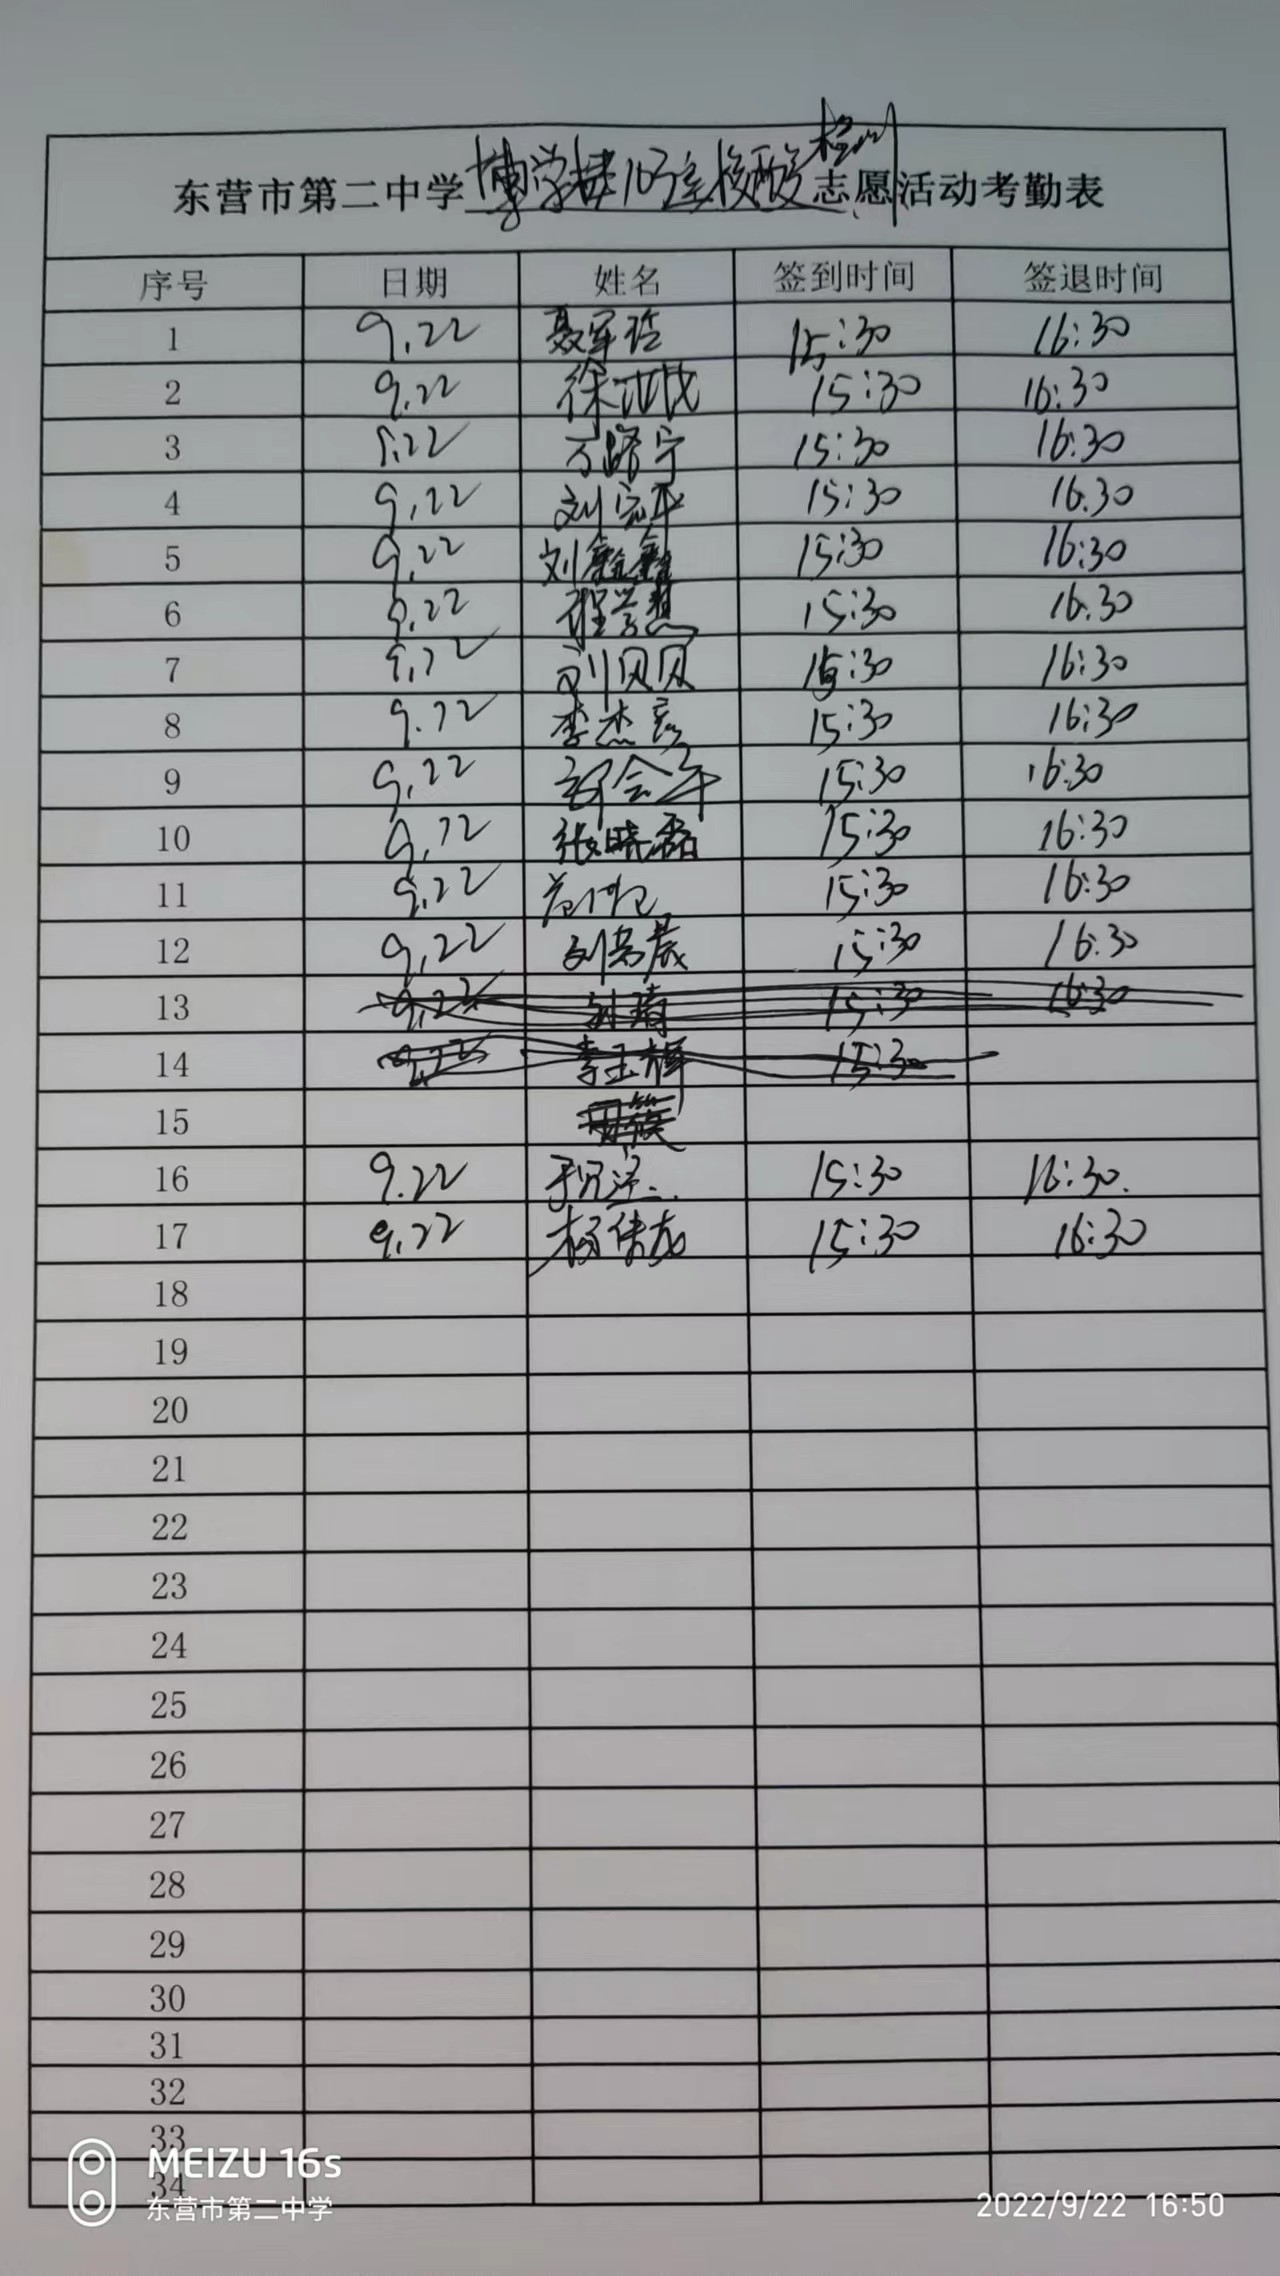 东营市第二中学博学楼105室核酸检测志愿活动考勤表
序号 日期 姓名 签到时间 签退时间
1 9.22 聂军玲 15:30 16:30
2 9.22 徐 15:30 16:30
3 9.22 万路宁 15:30 16:30
4 9.22 刘 15:30 16:30
5 9.22 刘鑫鑫 15:30 16:30
6 9.22 程学慧 15:30 16:30
7 9.22 刘贝贝 15:30 16:30
8 9.22 李杰彦 15:30 16:30
9 9.22 会军 15:30 16:30
10 9.22 张晓磊 15:30 16:30
11 9.22 15:30 16:30
12 9.22 刘 晨 15:30 16:30
13 9.22 15:30 16:30
14 9.22 李玉梅 15:30
15
16 9.22 15:30 16:30.
17 9.22 杨 15:30 16:30
18
19
20
21
22
23
24
25
26
27
28
29
30
31
32
33
34
MEIZU 16s
东营市第二中学
2022/9/22 16:50